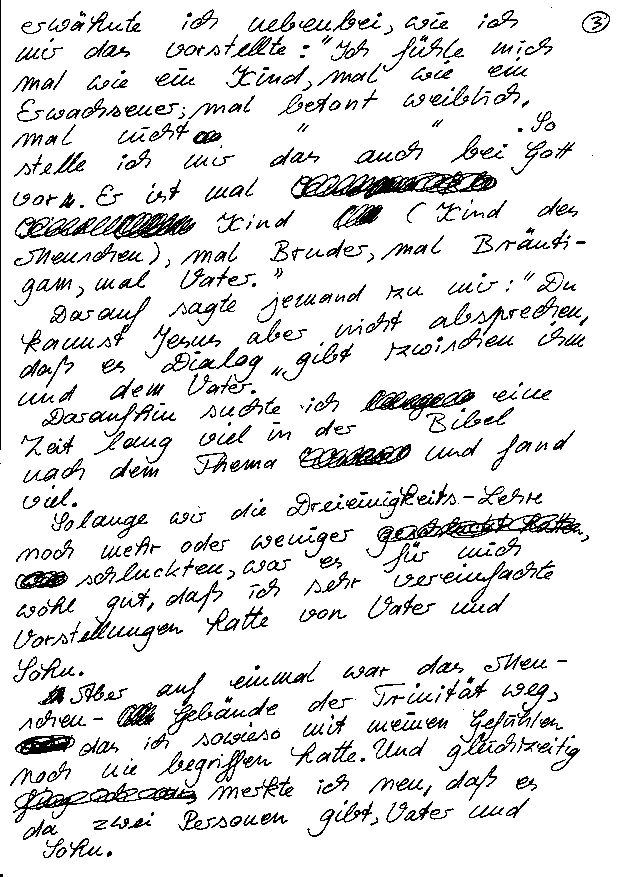 erwähnte ich nebenbei, wie ich ③
mir das vorstellte: "Ich fühle mich
mal wie ein Kind, mal wie ein
Erwachsener; mal betont weiblich,
mal nicht " " . So
stelle ich mir das auch bei Gott
vor. Er ist mal
Kind (Kind des
Menschen), mal Bruder, mal Bräuti-
gam, mal Vater."
Darauf sagte jemand zu mir: "Du
kannst Jesus aber nicht absprechen,
daß es Dialog gibt zwischen ihm
und dem Vater."
Daraufhin suchte ich eine
Zeit lang viel in der Bibel
nach dem Thema und fand
viel.
Solange wir die Dreieinigkeits-Lehre
noch mehr oder weniger
schluckten, war es für mich
wohl gut, daß ich sehr vereinfachte
Vorstellungen hatte von Vater und
Sohn.
Aber auf einmal war das Men-
schen- Gebäude der Trinität weg,
das ich sowieso mit meinen Gefühlen
noch nie begriffen hatte. Und gleichzeitig
merkte ich neu, daß es
da zwei Personen gibt, Vater und
Sohn.